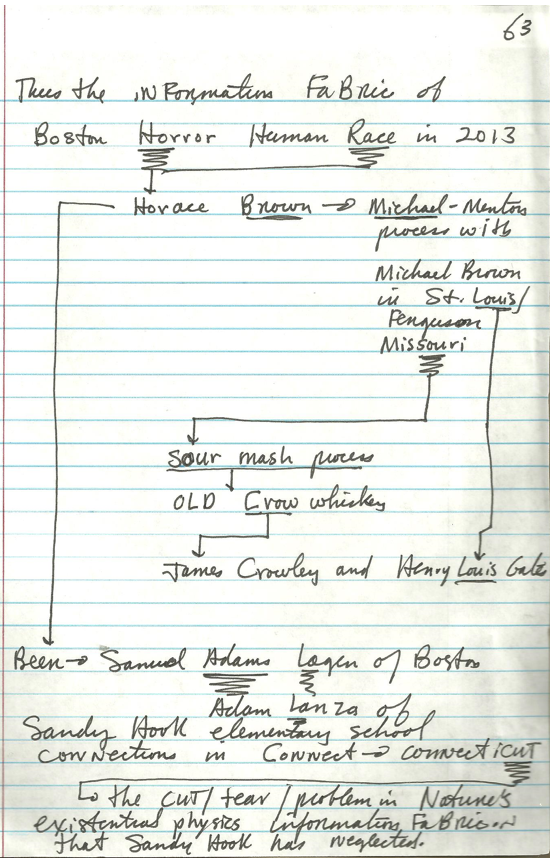 63
Thus the iNFormation FaBric of
Boston Horror Human Race in 2013
Horace Brown → Michael-Menton
process with
Michael Brown
in St. Louis/
Ferguson
Missouri
Sour mash process
OLD Crow whiskey
James Crowley and Henry Louis Gate
Been → Samuel Adams Lagen of Boston
Adam Lanza of
Sandy Hook elementary school
connections in Connect → connecticut
the cut/tear/problem in Nature's
existential physics information FaBric
that Sandy Hook has neglected.